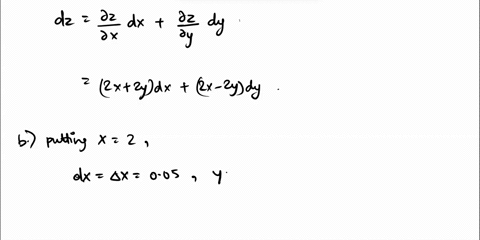 dz = ∂z/∂x dx + ∂z/∂y dy
= (2x+2y)dx + (2x-2y)dy .
b.) putting x = 2 ,
dx = Δx = 0.05 , y